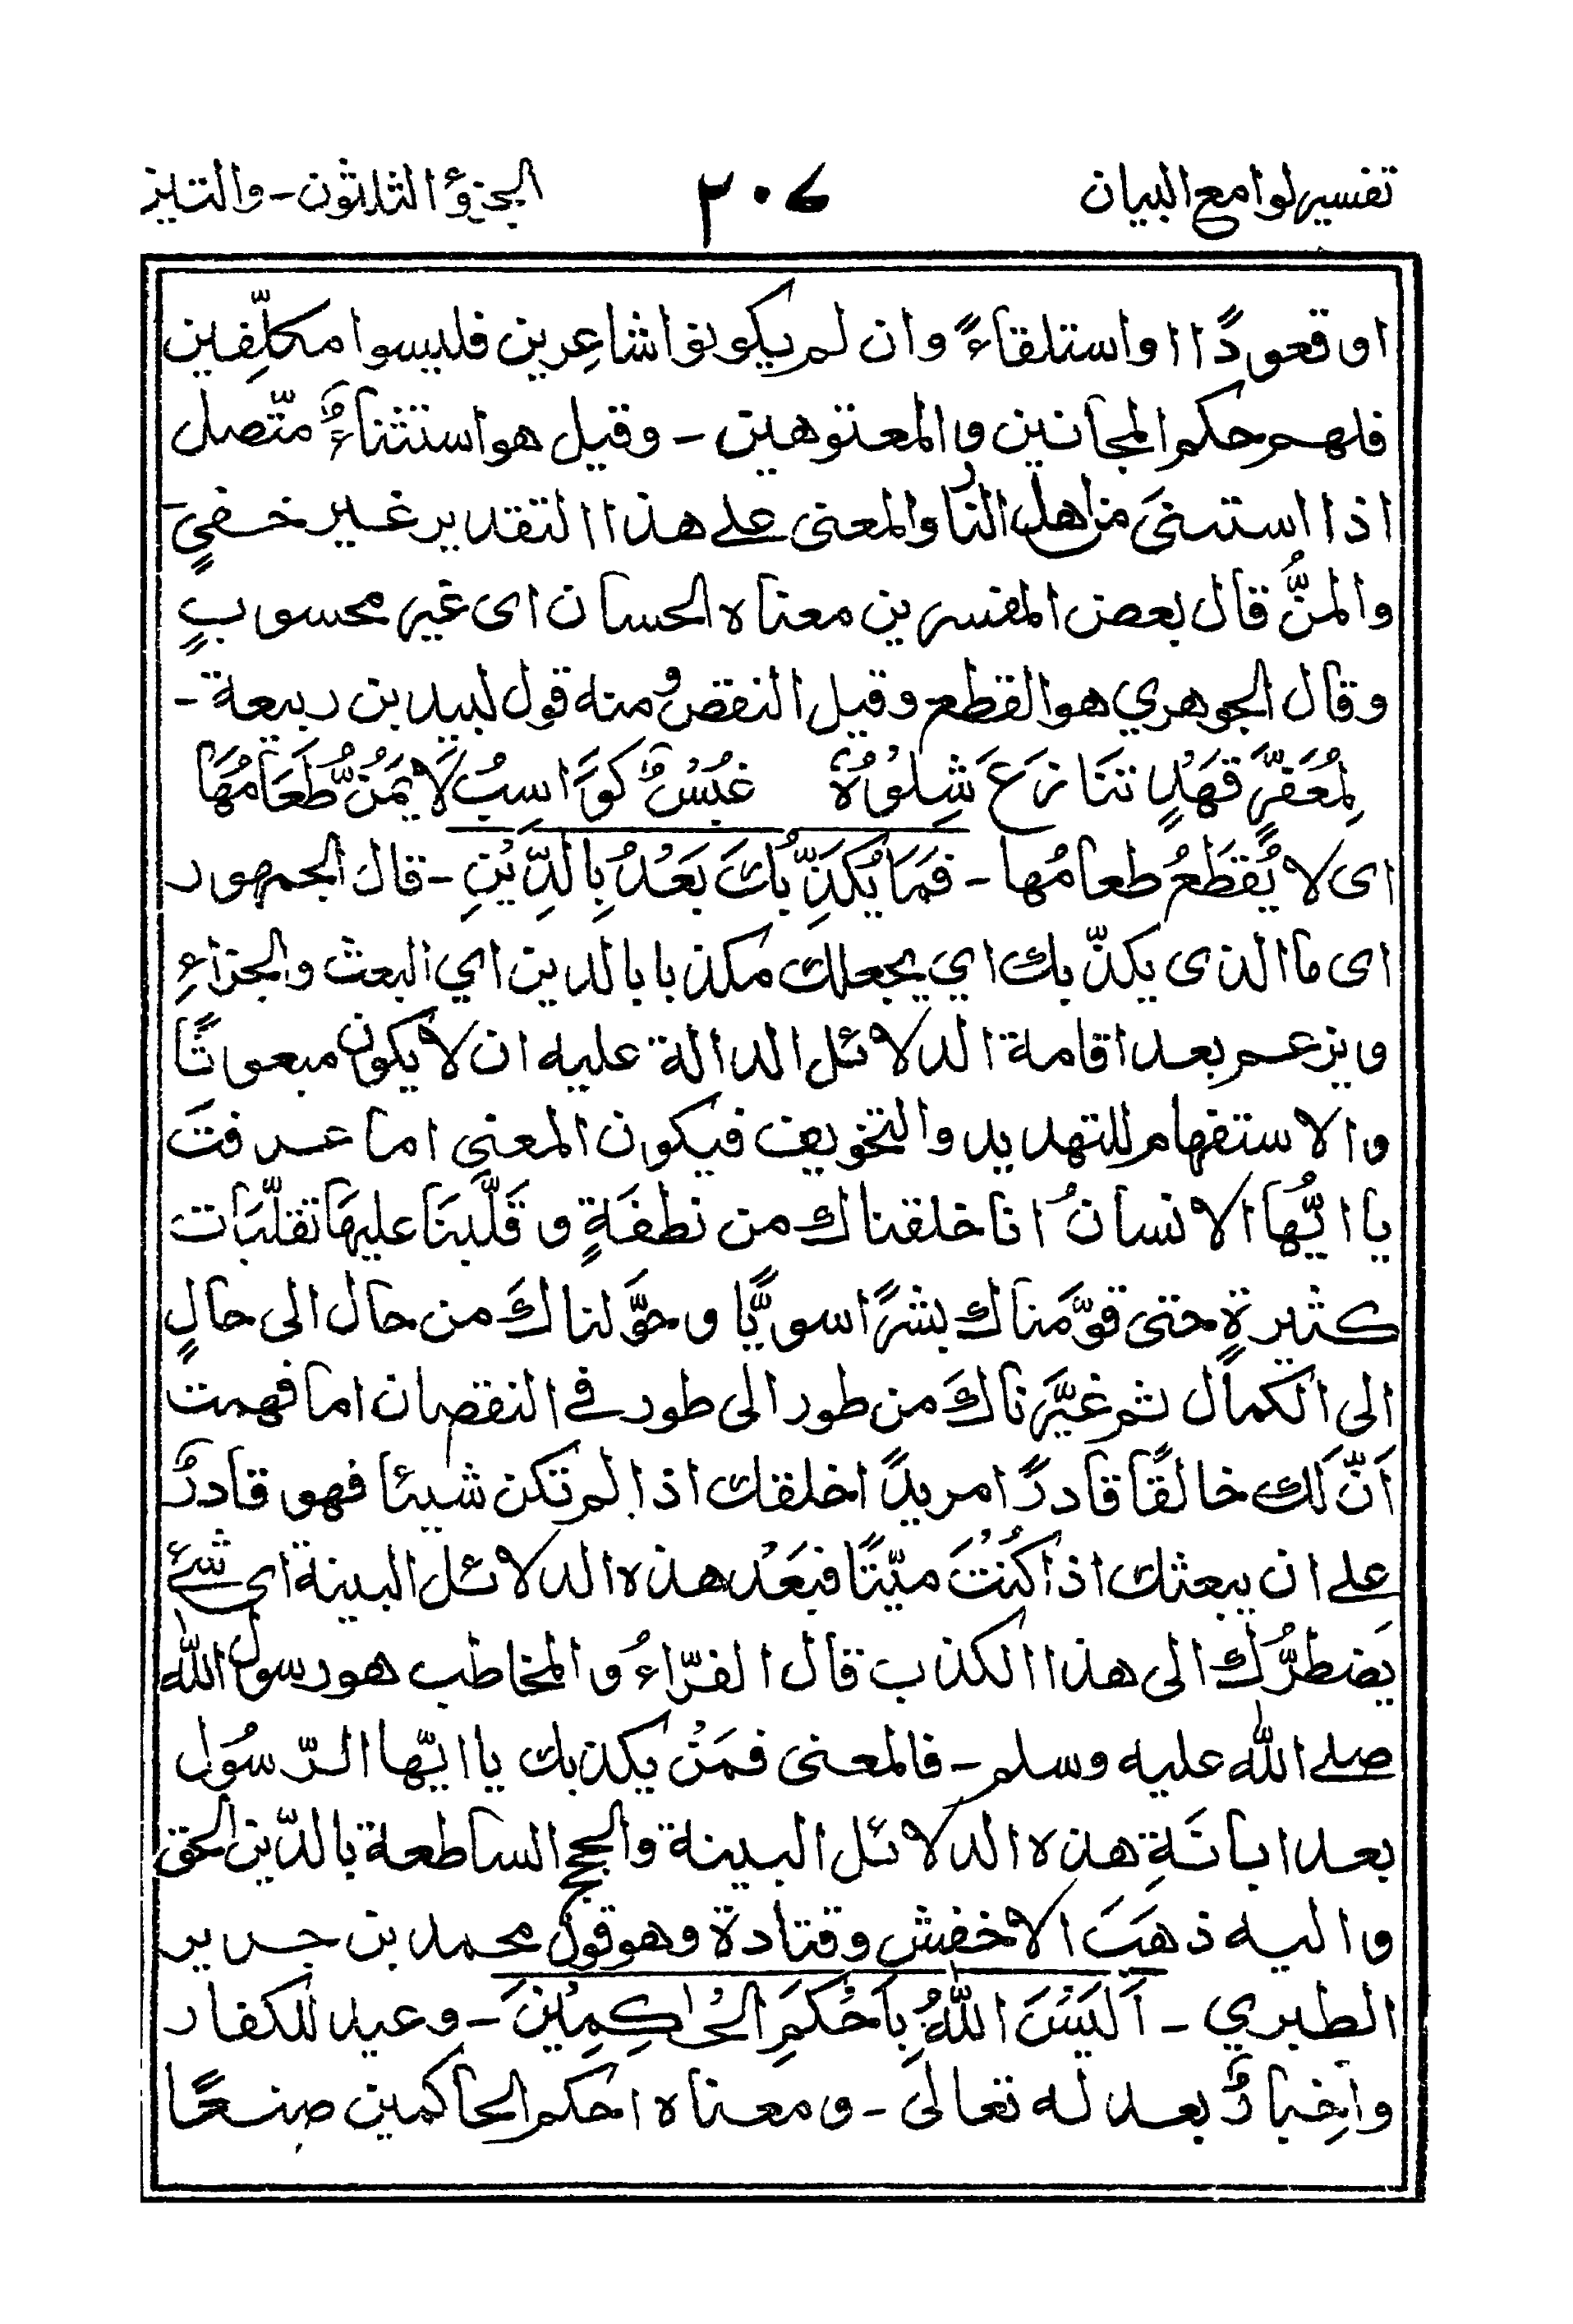 تفسير لوامع البيان ٢٠٧ الجزؤ الثلاثون - والتين
او قعودًا او استلقاءً وان لم يكونوا شاعِرين فليسوا مكلِّفين
فلهم حكم المجانين والمعتوهين - وقيل هو استثناءٌ متّصل
اذا استثنىٰ من اهل النار والمعنى على هذا التقدير غير خفيٍ -
والمنُّ قال بعض المفسرين معناه الحسان اى غير محسوبٍ
وقال الجوهري هو القطع وقيل النقص ومنه قول لبيد بن ربيعة -
لِمُعَفَّرٍ قَهْدٍ تَنَازَعَ شِلْوُهٗ غُبْسٌ كَوَاسِبُ لَا يُمَنُّ طَعَامُهَا
اى لا يُقطَعُ طعامُها - فَمَا يُكَذِّبُكَ بَعْدُ بِالدِّيْنِ - قال الجمهور
اى ما الذى يكذّبك اي يجعلك مكذبا بالدين اي البعث والجزاءِ
ويزعم بعد اقامة الدلائل الدالة عليه ان لا يكون مبعوثًا
والاستفهام للتهديد والتخويف فيكون المعنى اما عرفتَ
يا ايُّها الانسانُ انا خلقناك من نطفَةٍ وقَلَّبنَا عليهَا تقلّبَات
كثيرةٍ حتى قوَّمنَاك بشرًا سويًّا وحوَّلناكَ من حال الى حالٍ
الى الكمال ثم غيَّرناكَ من طور الى طور فى النقصان اما فهمت
اَنَّ لَك خالقًا قادرًا مريدًا خلقك اذا لم تكن شيئا فهو قادرٌ
على ان يبعثك اذا كُنْتَ ميّتًا فبَعْد هذه الدلائل البينة اى شئ
يَضطرُّك الى هذا الكذب قال الفرّاءُ والمخاطب هو رسول الله
صلى الله عليه وسلم - فالمعنى فمَنْ يكذبك يا ايّها الرّسُول
بعد ابانَةِ هذه الدلائل البينة والحجج الساطعة بالدّين الحق
واليه ذهَبَ الاخفش وقتادة وهو قول محمد بن جرير
الطبري - اَلَيْسَ اللّٰهُ بِاَحْكَمِ الْحٰكِمِيْنَ - وعيد للكفار
واخِبارٌ بعدله تعالىٰ - ومعناه احكم الحاكمين صنعًا